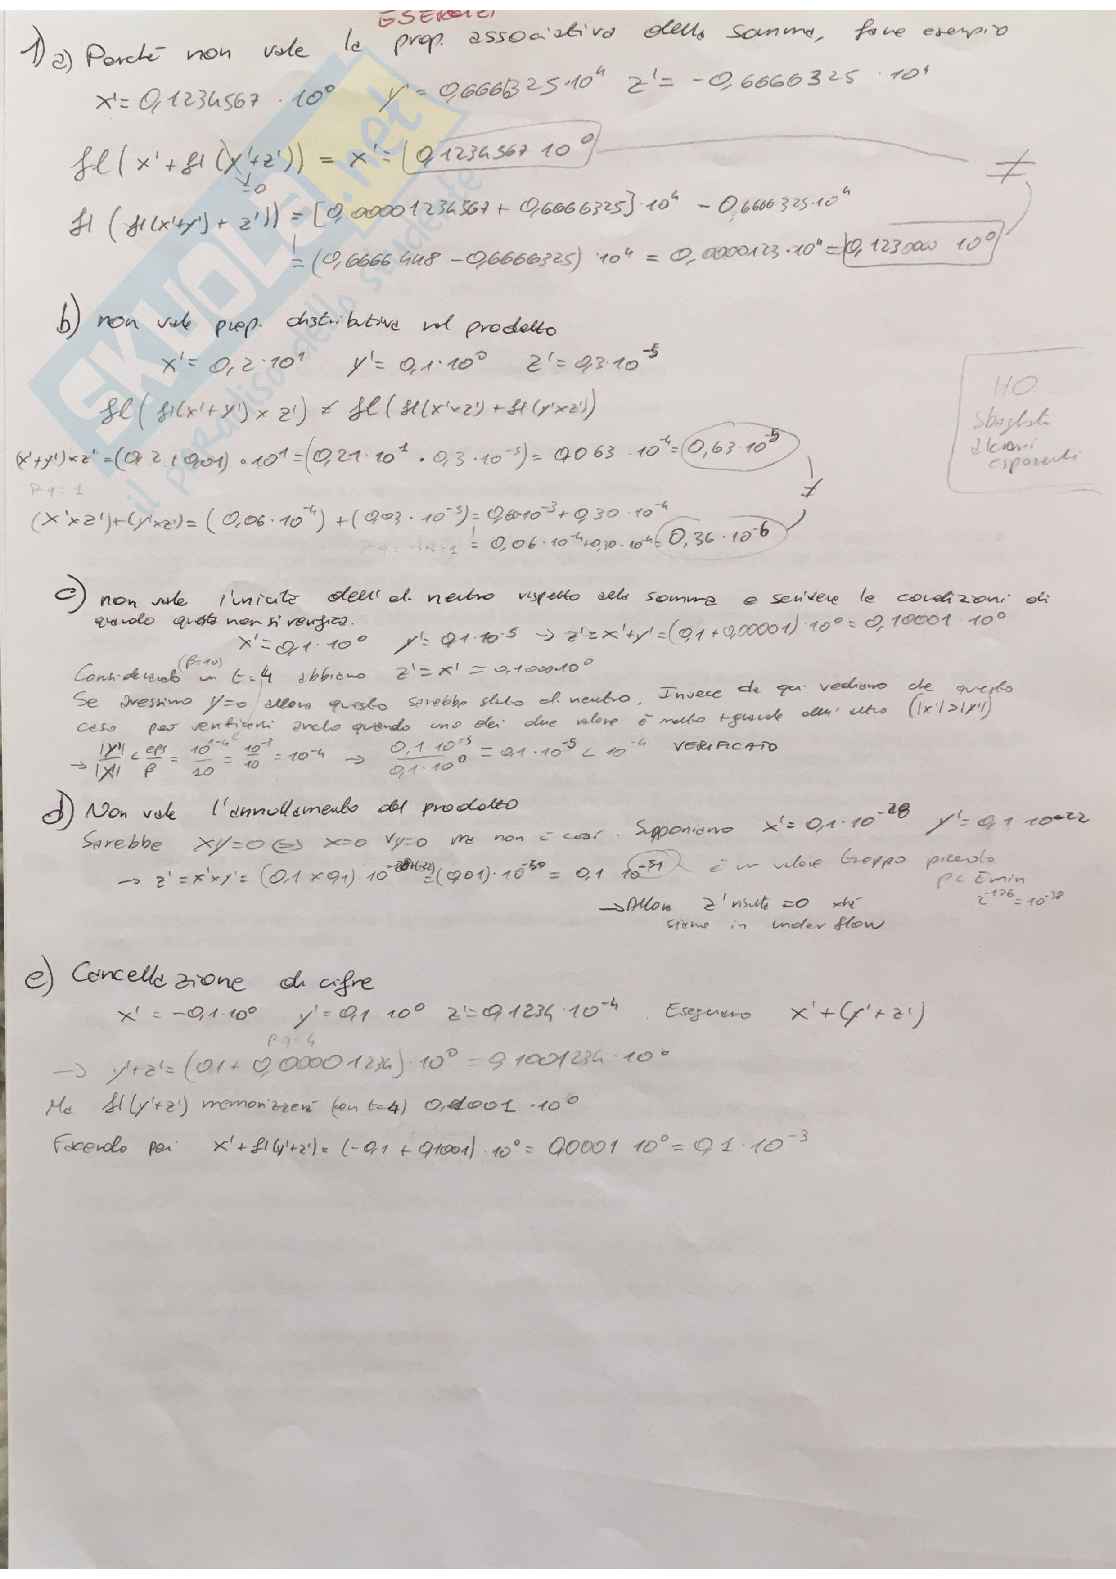 ESERCIZI
1) a) Perché non vale la prop. associativa della somma, fare esempio
x' = 0,1234567 · 10⁰ y' = 0,6666325 · 10⁴ z' = -0,6666325 · 10⁴
fl(x' + fl(y'+z')) = x' = 0,1234567 10⁰
=0
≠
fl(fl(x'+y') + z')) = [0,00001234567 + 0,6666325] · 10⁴ - 0,6666325 · 10⁴
= (0,6666448 - 0,6666325) · 10⁴ = 0,0000123 · 10⁴ = 0,123000 10⁰
b) non vale prop. distributiva nel prodotto
x' = 0,2 · 10¹ y' = 0,1 · 10⁰ z' = 0,3 · 10⁻⁵
fl(fl(x'+y') × z') ≠ fl(fl(x'×z') + fl(y'×z'))
HO
sbagliato
alcuni
esponenti
(x'+y')×z' = (0,2 + 0,01) · 10¹ = (0,21 · 10¹ · 0,3 · 10⁻⁵) = 0,063 · 10⁻⁴ = 0,63 · 10⁻⁵
≠
(x'×z')+(y'×z') = (0,06 · 10⁻⁴) + (0,03 · 10⁻⁵) = 0,60 10⁻³ + 0,30 · 10⁻⁴
= 0,06 · 10⁻⁴ + 0,30 · 10⁻⁴ = 0,36 · 10⁻⁶
c) non vale l'unicità dell'el. neutro rispetto alla somma e scrivere le condizioni di
quando questa non si verifica.
x' = 0,1 · 10⁰ y' = 0,1 · 10⁻⁵ → z' = x'+y' = (0,1 + 0,00001) · 10⁰ = 0,10001 · 10⁰
(β=10)
Considerando un t=4 abbiamo z' = x' = 0,1000 10⁰
Se avessimo y=0 allora questo sarebbe stato el. neutro. Invece da qui vediamo che questo
caso può verificarsi anche quando uno dei due valore è molto + grande dell'altro (|x'|>|y'|)
→ |y'|/|x'| < eps/β = 10⁻⁴/10 = 10⁻³/10 = 10⁻⁴ → 0,1 10⁻⁵/0,1 · 10⁰ = 0,1 · 10⁻⁵ < 10⁻⁴ VERIFICATO
d) Non vale l'annullamento del prodotto
Sarebbe xy=0 ⇔ x=0 ∨ y=0 ma non è così. Supponiamo x' = 0,1 · 10⁻²⁸ y' = 0,1 10⁻²²
→ z' = x'×y' = (0,1 × 0,1) · 10 = (0,01) · 10⁻⁵⁰ = 0,1 10⁻⁵¹ è un valore troppo piccolo
p < Emin
2⁻¹²⁶ = 10⁻³⁸
→ Allora z' risulta =0 xké
siamo in underflow
e) Cancellazione di cifre
x' = -0,1 · 10⁰ y' = 0,1 10⁰ z' = 0,1234 · 10⁻⁴. Eseguiamo x' + (y'+z')
→ y'+z' = (0,1 + 0,00001234) · 10⁰ = 0,1001234 · 10⁰
Ma fl(y'+z') memorizzerà (con t=4) 0,1001 · 10⁰
Facendo poi x' + fl(y'+z') = (-0,1 + 0,1001) · 10⁰ = 0,0001 10⁰ = 0,1 · 10⁻³
SKUOLA.net
il paradiso dello studente